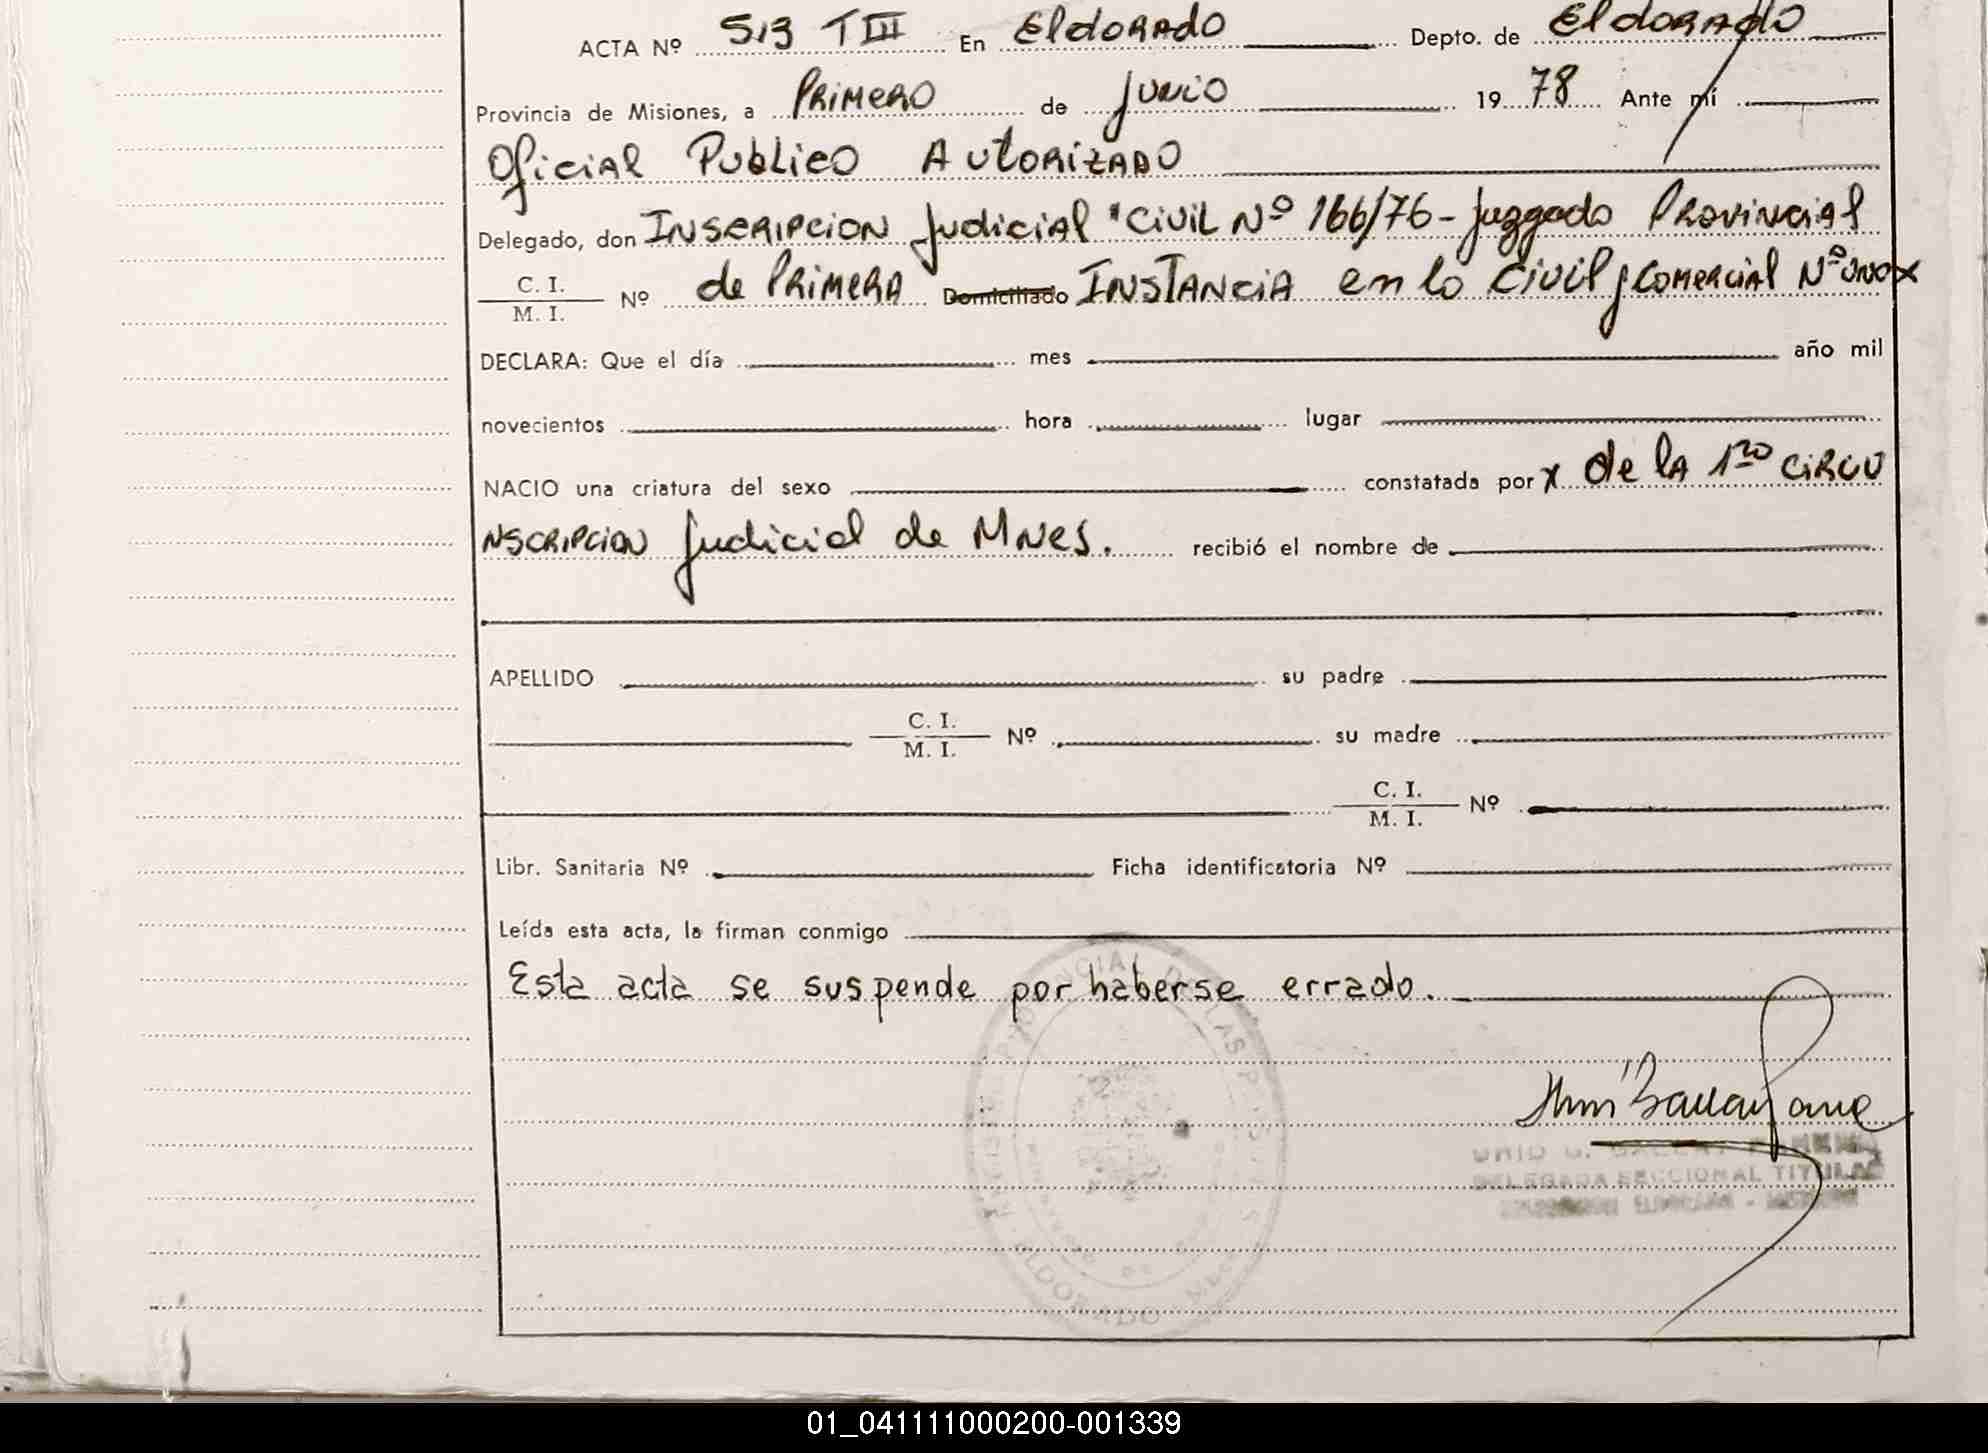 ACTA Nº 513 TIII En Eldorado Depto. de Eldorado
Provincia de Misiones, a Primero de Junio 1978 Ante mí
Oficial Publico Autorizado
Delegado, don Inscripcion Judicial "Civil Nº 166/76 - Juzgado Provincial
C. I.
M. I. Nº de Primera Domiciliado Instancia en lo Civil y Comercial Nº uno x
DECLARA: Que el día mes año mil
novecientos hora lugar
NACIO una criatura del sexo constatada por x de la 1ra Circu
nscripcion Judicial de Mnes. recibió el nombre de
APELLIDO su padre
C. I.
M. I. Nº su madre
C. I.
M. I. Nº
Libr. Sanitaria Nº Ficha identificatoria Nº
Leída esta acta, la firman conmigo
Esta acta se suspende por haberse errado.
DELEGADA SECCIONAL TITULAR
ELDORADO
01_041111000200-001339